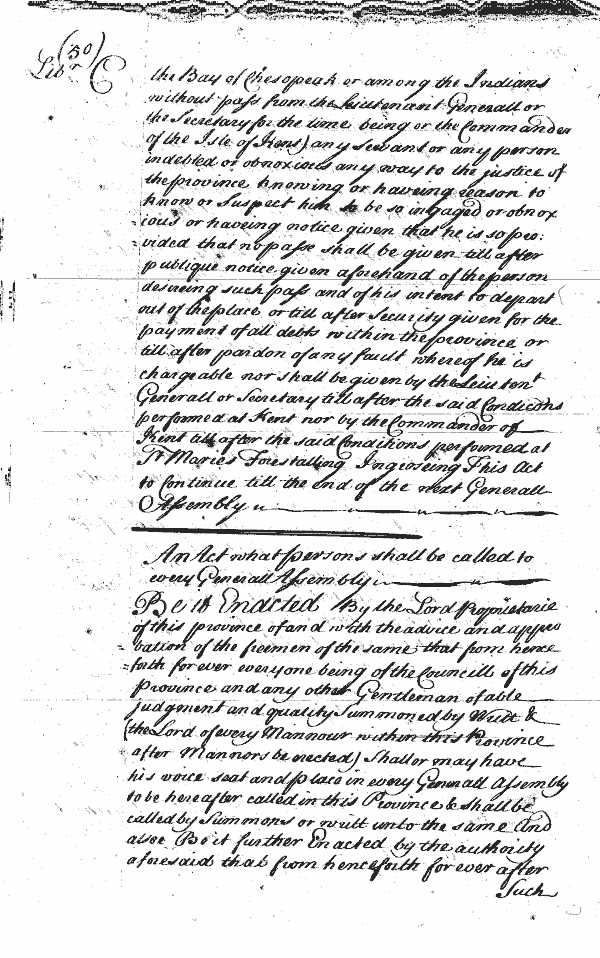 (50)
Libr C
the Bay of Chesopeak or among the Indians
without pass from the Leiutenant Generall or
the Secretary for the time being or the Commander
of the Isle of Kent) any Servant or any person
indebted or obnoxious any way to the justice of
the province knowing or haveing reason to
know or Suspect him to be so ingaged or obnox
ious or haveing notice given that he is so pro:
vided that no passe shall be given till after
publique notice given aforehand of the person
desireing such pass and of his intent to depart
out of the place or till after Security given for the
payment of all debts within the province or
till after pardon of any fault whereof he is
chargeable nor shall be given by the Leiutent
Generall or Secretary till after the said Condicons
performed at Kent nor by the Commander of
Kent till after the said Conditions performed at
St Maries Forestalling Ingrossing This Act
to Continue till the end of the next Generall
Assembly
An Act what persons shall be called to
every Generall Assembly
Be it Enacted By the Lord Proprietarie
of this province of and with the advice and appro
bation of the freemen of the same that from hence
forth for ever everyone being of the Councill of this
Province and any other Gentleman of able
judgment and quality Summoned by Writt &
(the Lord of every Mannour within this Province
after Mannors be erected) Shall or may have
his voice seat and place in every Generall Assembly
to be hereafter called in this Province & shall be
called by Summons or writt unto the same And
alsoe Be it further Enacted by the authority
aforesaid that from henceforth for ever after
Such